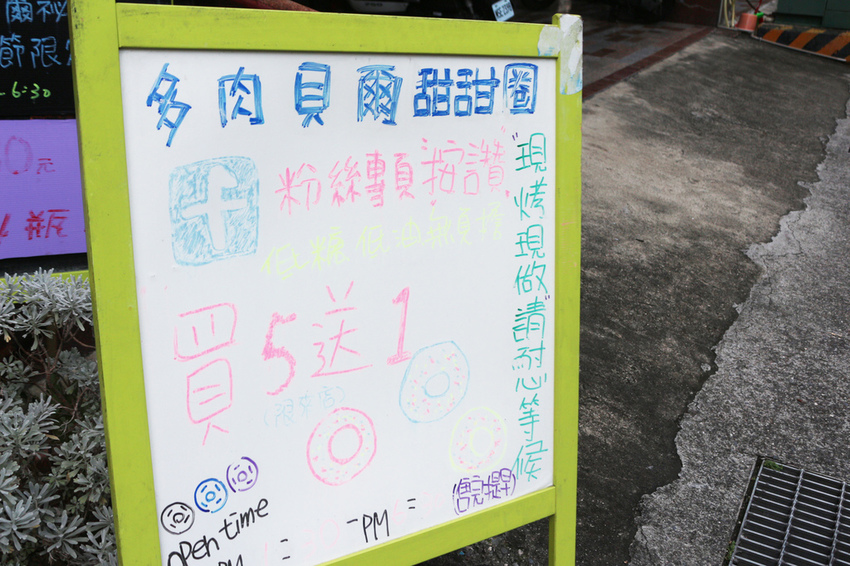 多肉貝爾甜甜圈
粉絲專頁"按讚"
低糖低油無負擔
買5送1
(限來店)
"現烤現做"請耐心等候
(售完提早)
open time
PM : -PM :
節限
-6:30
0元
瓶